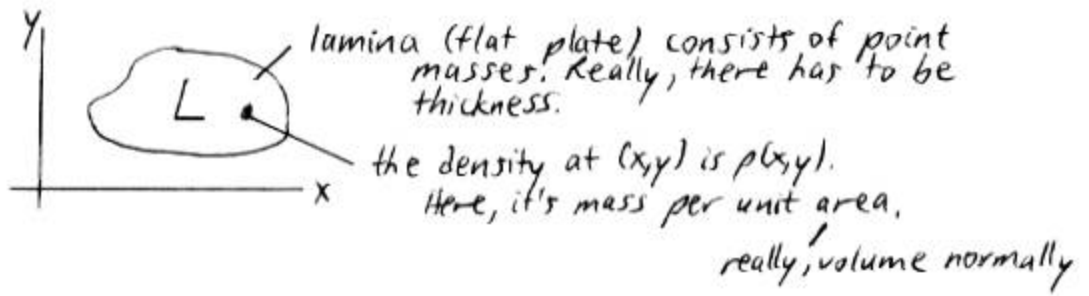 y
lamina (flat plate) consists of point
masses. Really, there has to be
thickness.
L
the density at (x,y) is ρ(x,y).
x
Here, it's mass per unit area.
really, volume normally